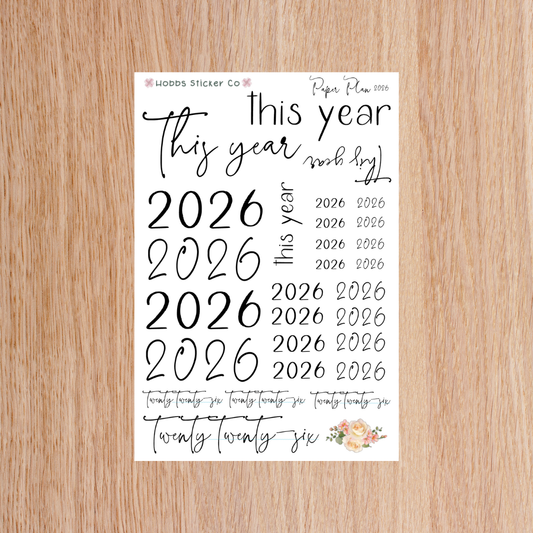 Hobbs Sticker Co
Paper Plan 2026
this year
This year
This year
this year
2026
2026
2026
2026
2026 2026
2026 2026
2026 2026
2026 2026
2026 2026
2026 2026
2026 2026
2026 2026
Twenty Twenty-six Twenty Twenty-six Twenty Twenty-six
Twenty Twenty-six